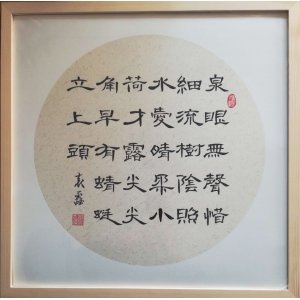 泉眼無聲惜
細流樹陰照
水愛晴柔小
荷才露尖尖
角早有蜻蜓
立上頭